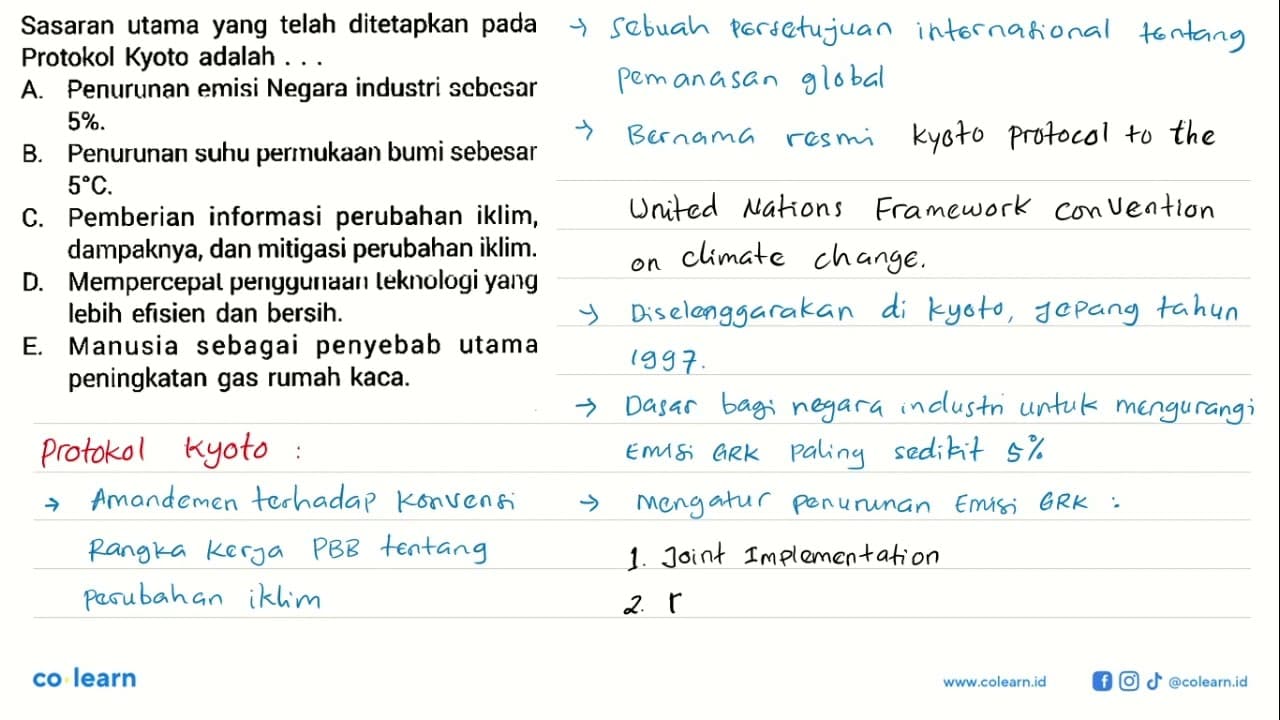 Sasaran utama yang telah ditetapkan pada
Protokol Kyoto adalah . . .
A. Penurunan emisi Negara industri sebesar
5%.
B. Penurunan suhu permukaan bumi sebesar
5°C.
C. Pemberian informasi perubahan iklim,
dampaknya, dan mitigasi perubahan iklim.
D. Mempercepat penggunaan teknologi yang
lebih efisien dan bersih.
E. Manusia sebagai penyebab utama
peningkatan gas rumah kaca.
Protokol Kyoto :
→ Amandemen terhadap Konvensi
Rangka Kerja PBB tentang
perubahan iklim
→ Sebuah persetujuan internasional tentang
pemanasan global
→ Bernama resmi Kyoto Protocol to the
United Nations Framework Convention
on climate change.
→ Diselenggarakan di Kyoto, Jepang tahun
1997.
→ Dasar bagi negara industri untuk mengurangi
Emisi GRK paling sedikit 5%
→ Mengatur penurunan Emisi GRK :
1. Joint Implementation
2. r
co learn
www.colearn.id
@colearn.id